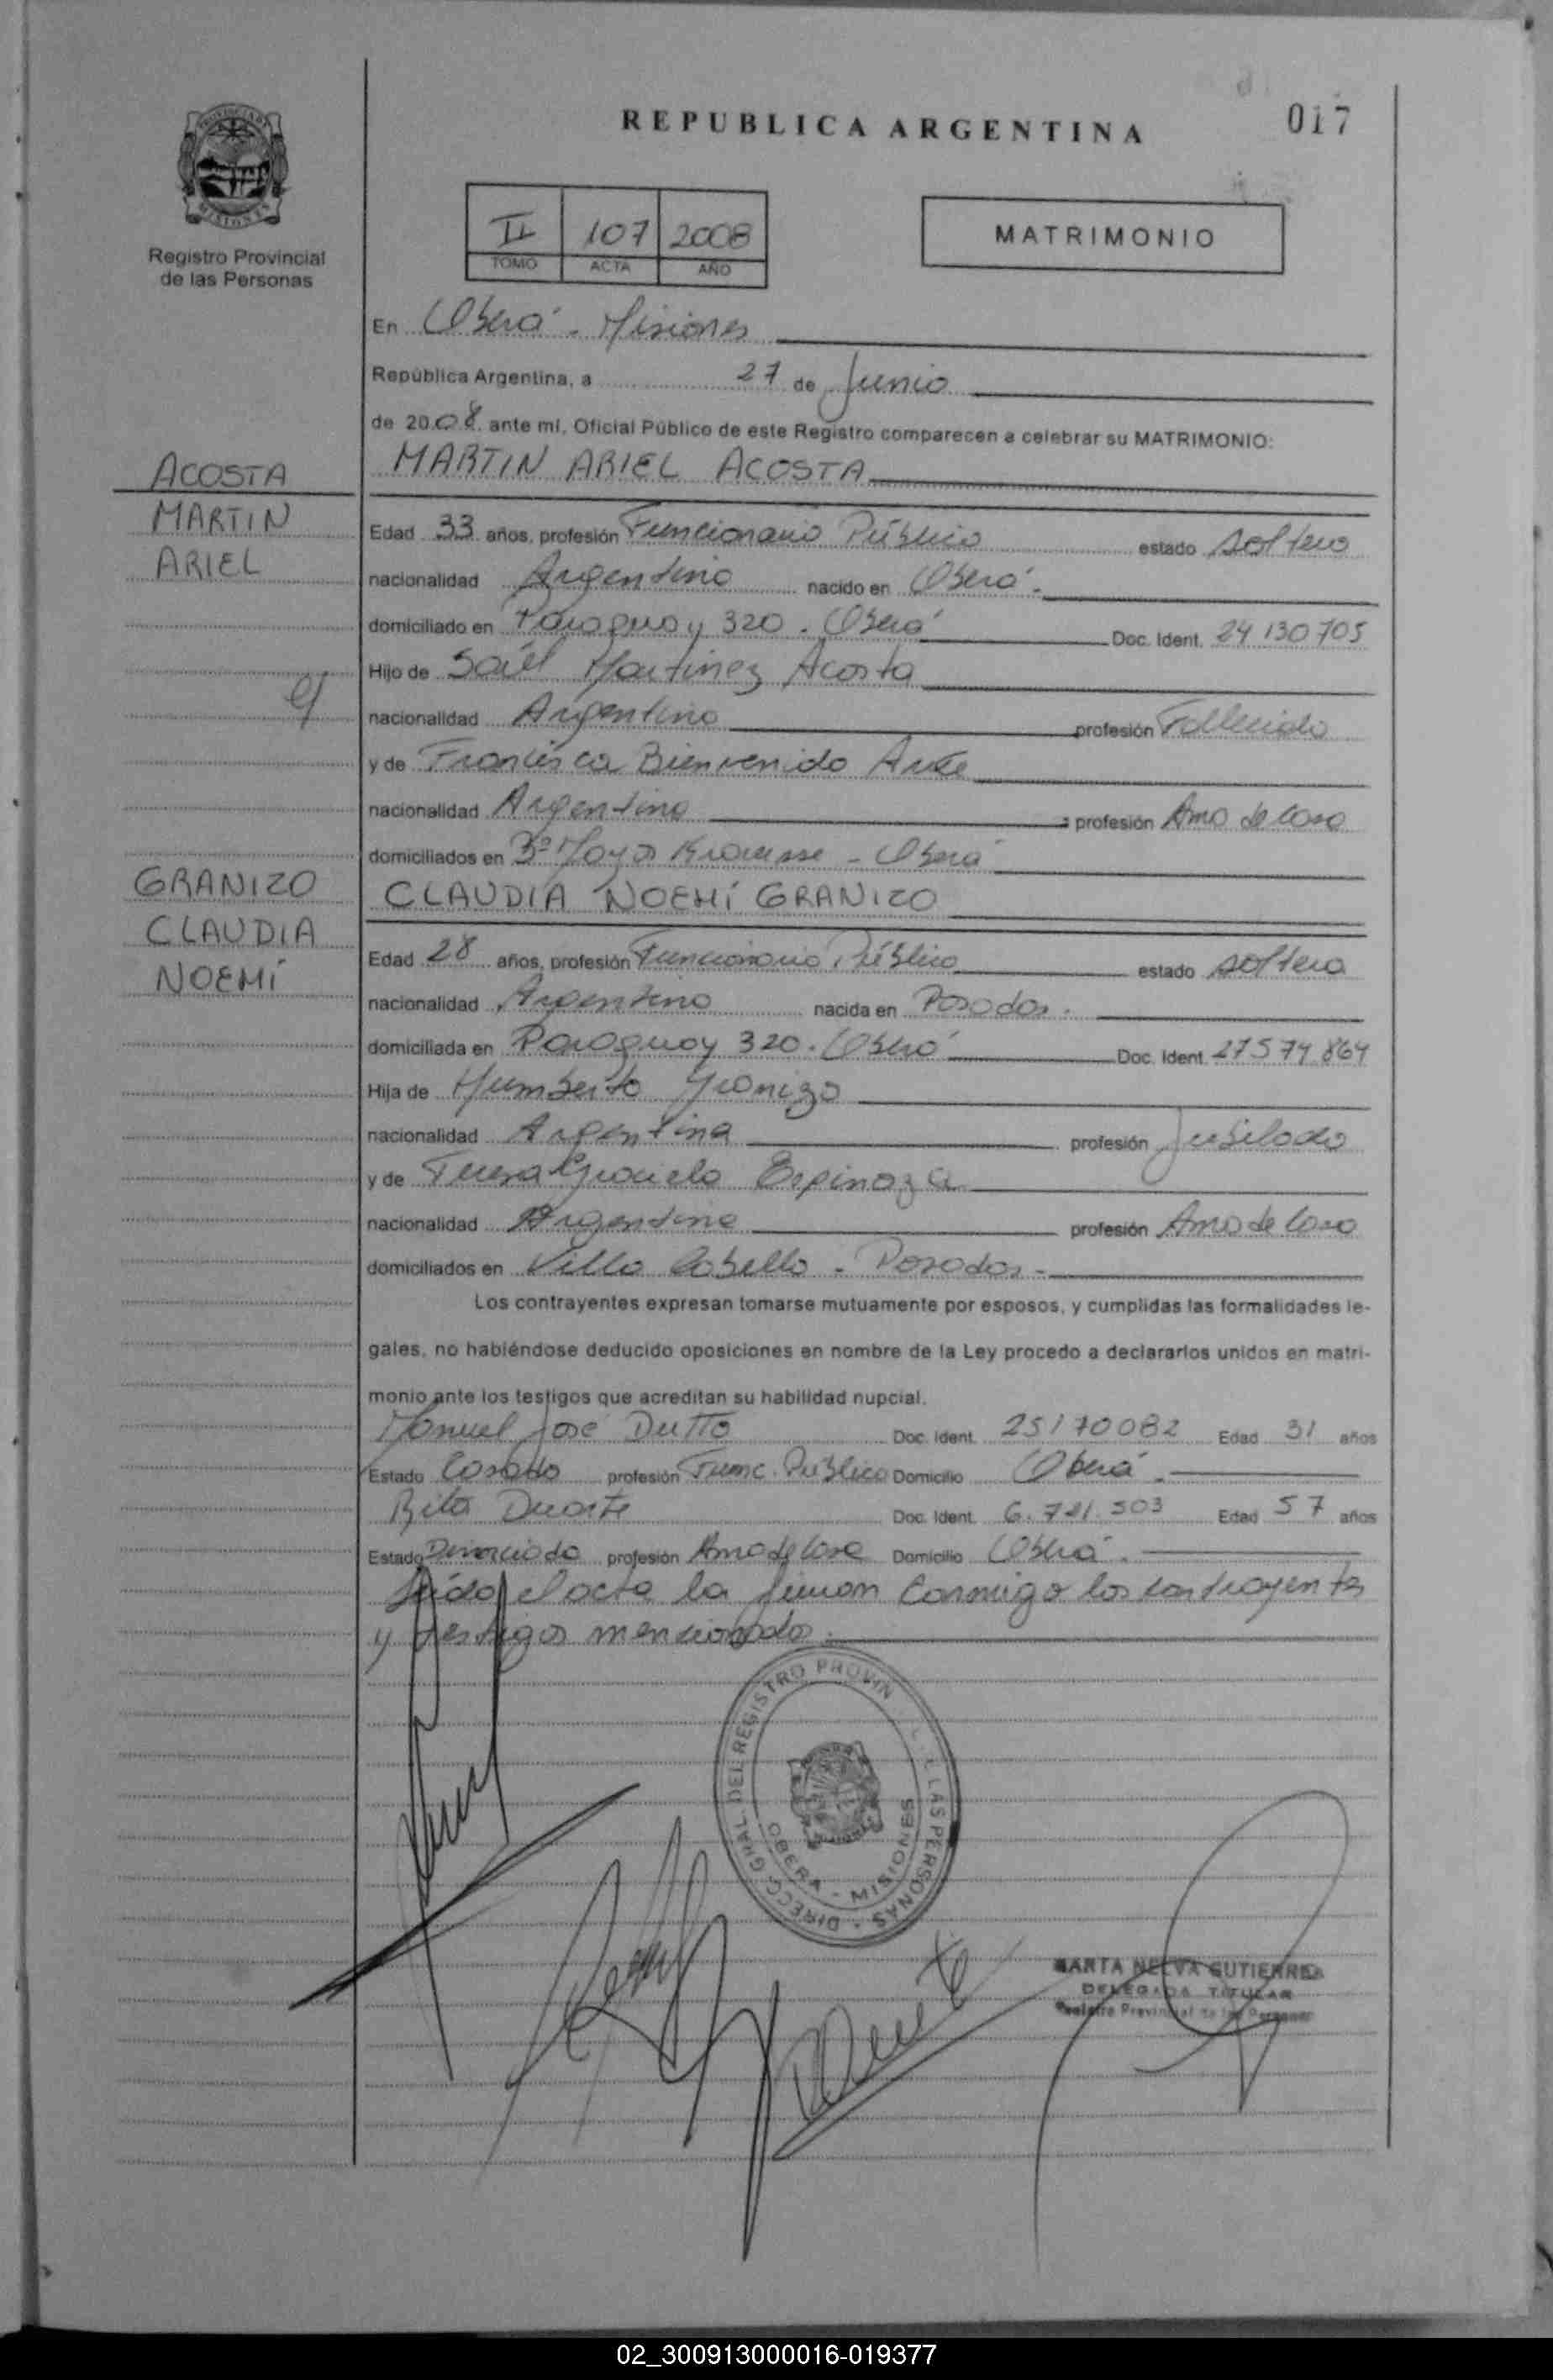 REPUBLICA ARGENTINA
017
PROVINCIA DE
MISIONES
Registro Provincial
de las Personas
II 107 2008
TOMO ACTA AÑO
MATRIMONIO
En Oberá - Misiones
República Argentina, a 27 de Junio
de 2008 ante mí, Oficial Público de este Registro comparecen a celebrar su MATRIMONIO:
MARTIN ARIEL ACOSTA
ACOSTA
MARTIN
ARIEL
Edad 33 años, profesión Funcionario Público estado soltero
nacionalidad Argentino nacido en Oberá -
domiciliado en Paraguay 320 - Oberá Doc. Ident. 24 130 705
Hijo de Saúl Martinez Acosta
y
nacionalidad Argentino profesión Fallecido
y de Francisca Bienvenida
nacionalidad Argentina profesión Ama de casa
domiciliados en 3º Mayo - Oberá
GRANIZO
CLAUDIA
NOEMÍ
CLAUDIA NOEMÍ GRANIZO
Edad 28 años, profesión Funcionario Público estado soltera
nacionalidad Argentina nacida en Posadas.
domiciliada en Paraguay 320 - Oberá Doc. Ident. 27 574 864
Hija de Humberto Granizo
nacionalidad Argentina profesión Jubilado
y de Teresa Graciela Espinoza
nacionalidad Argentina profesión Ama de casa
domiciliados en Villa Cabello - Posadas -
Los contrayentes expresan tomarse mutuamente por esposos, y cumplidas las formalidades le-
gales, no habiéndose deducido oposiciones en nombre de la Ley procedo a declararlos unidos en matri-
monio ante los testigos que acreditan su habilidad nupcial.
Manuel José Dutto Doc. Ident. 25170082 Edad 31 años
Estado Casado profesión Func. Público Domicilio Oberá.
Rita Duarte Doc. Ident. 6.721.503 Edad 57 años
Estado Divorciada profesión Ama de casa Domicilio Oberá.
Leída el acta la firman conmigo los contrayentes
y testigos mencionados.
DIRECC. GRAL. DEL REGISTRO PROVIN LAS PERSONAS
OBERA - MISIONES
MARTA NELVA GUTIERREZ
DELEGADA TITULAR
Registro Provincial de las Personas
02_300913000016-019377